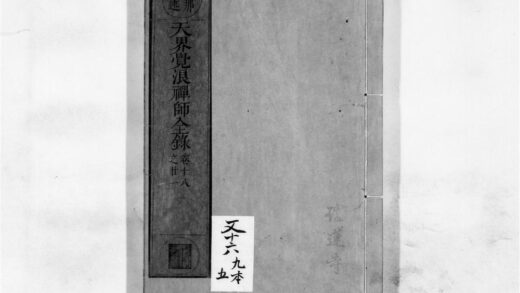 天界覺浪禪師全錄
卷十八
之廿一
又十六
九本
五